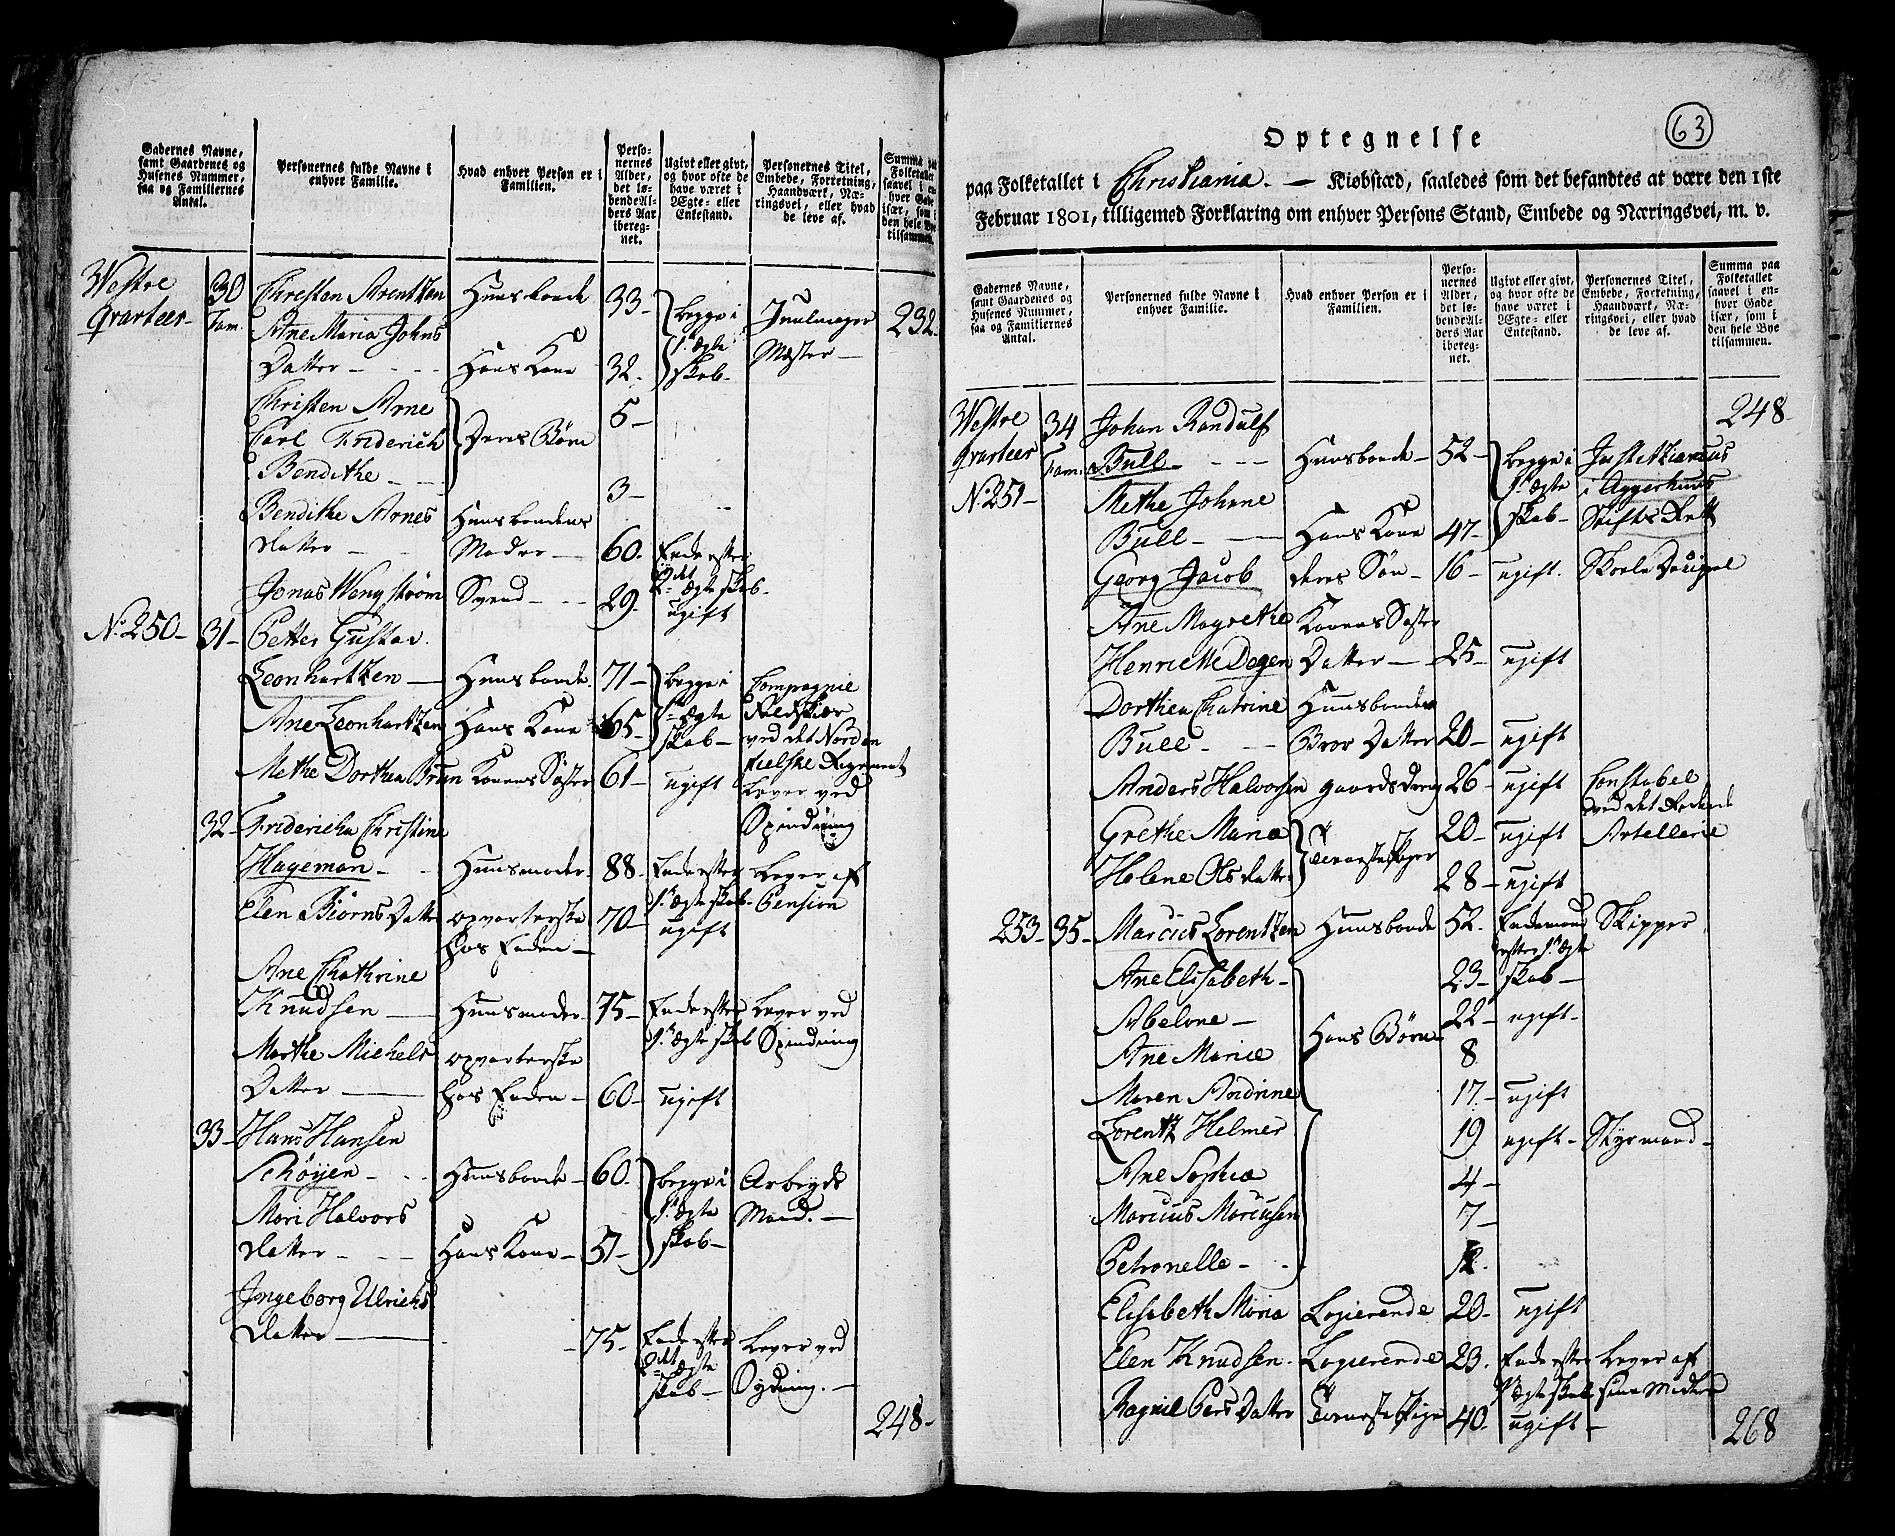 Gadernes Navne, samt Gaardenes og Husenes Nummer, saa og Familiernes Antal.
Personernes fulde Navne i enhver Familie.
Hvad enhver Person er i Familien.
Personernes Alder, det løbende Alders Aar iberegnet.
Ugivt eller givt, og hvor ofte de have været i Ægte- eller Enkestand.
Personernes Titel, Embede, Forretning, Haandværk, Næringsvei, eller hvad de leve af.
Summa paa Folketallet saavel i enhver Gade især, som i den hele Bye tilsammen.
Westre 30 Christen Arentzen Huusbonde 33 begge i Juulmager 232
Qvarteer Fam. Ane Maria Johns 1ste Ægte Mester
Datter Hans Kone 32 skab
Christen Arne Deres Børn 5
Carl Friderich
Bendithe 3
Bendithe Arnes Huusbondens
Datter Moder 60 Enke efter 2det Ægteskab
Jonas Wengstrøm Svend 29 ugift
No 250 31 Petter Gustav
Leonhartzen Huusbonde 71 begge i Compagnie
Ane Leonhartzen Hans Kone 65 1ste Ægte Feldskiær
skab ved det Norden
Methe Dorthea Brun Konens Søster 61 ugift fielske Regement
lever ved
32 Fridericha Christine Spinding
Hageman Huusmoder 88 Enke efter Lever af
Elen Biørns Datter opvarterske 70 1ste Ægteskab Pension
hos Enken ugift
Ane Chathrine
Knudsen Huusmoder 75 Enke efter Lever ved
Marthe Michels opvarterske 1ste Ægteskab Spinding
Datter hos Enken 60 ugift
33 Hans Hansen
Schøyen Huusbonde 60 begge i Arbeyds
Mari Halvors 1ste Ægte Mand
Datter Hans Kone 57 skab
Ingeborg Ulrichs
Datter 75 Enke efter Lever ved
2det Ægte
skab Syding
248
63
Optegnelse
paa Folketallet i Christiania. — Kiøbstæd, saaledes som det befandtes at være den 1ste
Februar 1801, tilligemed Forklaring om enhver Persons Stand, Embede og Næringsvei, m. v.
Gadernes Navne, samt Gaardenes og Husenes Nummer, saa og Familiernes Antal.
Personernes fulde Navne i enhver Familie.
Hvad enhver Person er i Familien.
Personernes Alder, det løbende Alders Aar iberegnet.
Ugivt eller givt, og hvor ofte de have været i Ægte- eller Enkestand.
Personernes Titel, Embede, Forretning, Haandværk, Næringsvei, eller hvad de leve af.
Summa paa Folketallet saavel i enhver Gade især, som i den hele Bye tilsammen.
248
Westre 34 Johan Randulf
Qvarteer Fam. Bull Huusbonde 52 begge i Justitiarius
No 251 Methe Johane 1ste Ægte i Aggerhuus
Bull Hans Kone 47 skab Stifts Rett
Georg Jacob deres Søn 16 ugift. Skole Discipel
Ane Magrethe Konens Søster
Henriette Degen Datter 25 ugift
Dorthea Chatrine Huusbondens
Bull Bror Datter 20 ugift
Anders Halvorsen gaardsdreng 26 ugift Constabel
ved det
Grethe Maria Tieneste Piger 20 ugift Artellerie
Helene Ols Datter 28 ugift
253 35 Marcus Lorentzen Huusbonde 52 Enkemand Skipper
efter 1ste Ægte
Ane Elisabeth Hans Børn 23 skab
Abelone 22 ugift
Ane Marie 8
Maren Andrine 17 ugift
Lorentz Helmer 19 ugift Styrmand
Ane Sophia 4
Marcus Marcusen 7
Petronelle 12
Elisabeth Maria Logierende 20 ugift
Elen Knudsen Logierende 23 Enke efter Lever af
1ste Ægteskab sine Midler
Ragnil Pers Datter Tieneste Pige 40 ugift
268